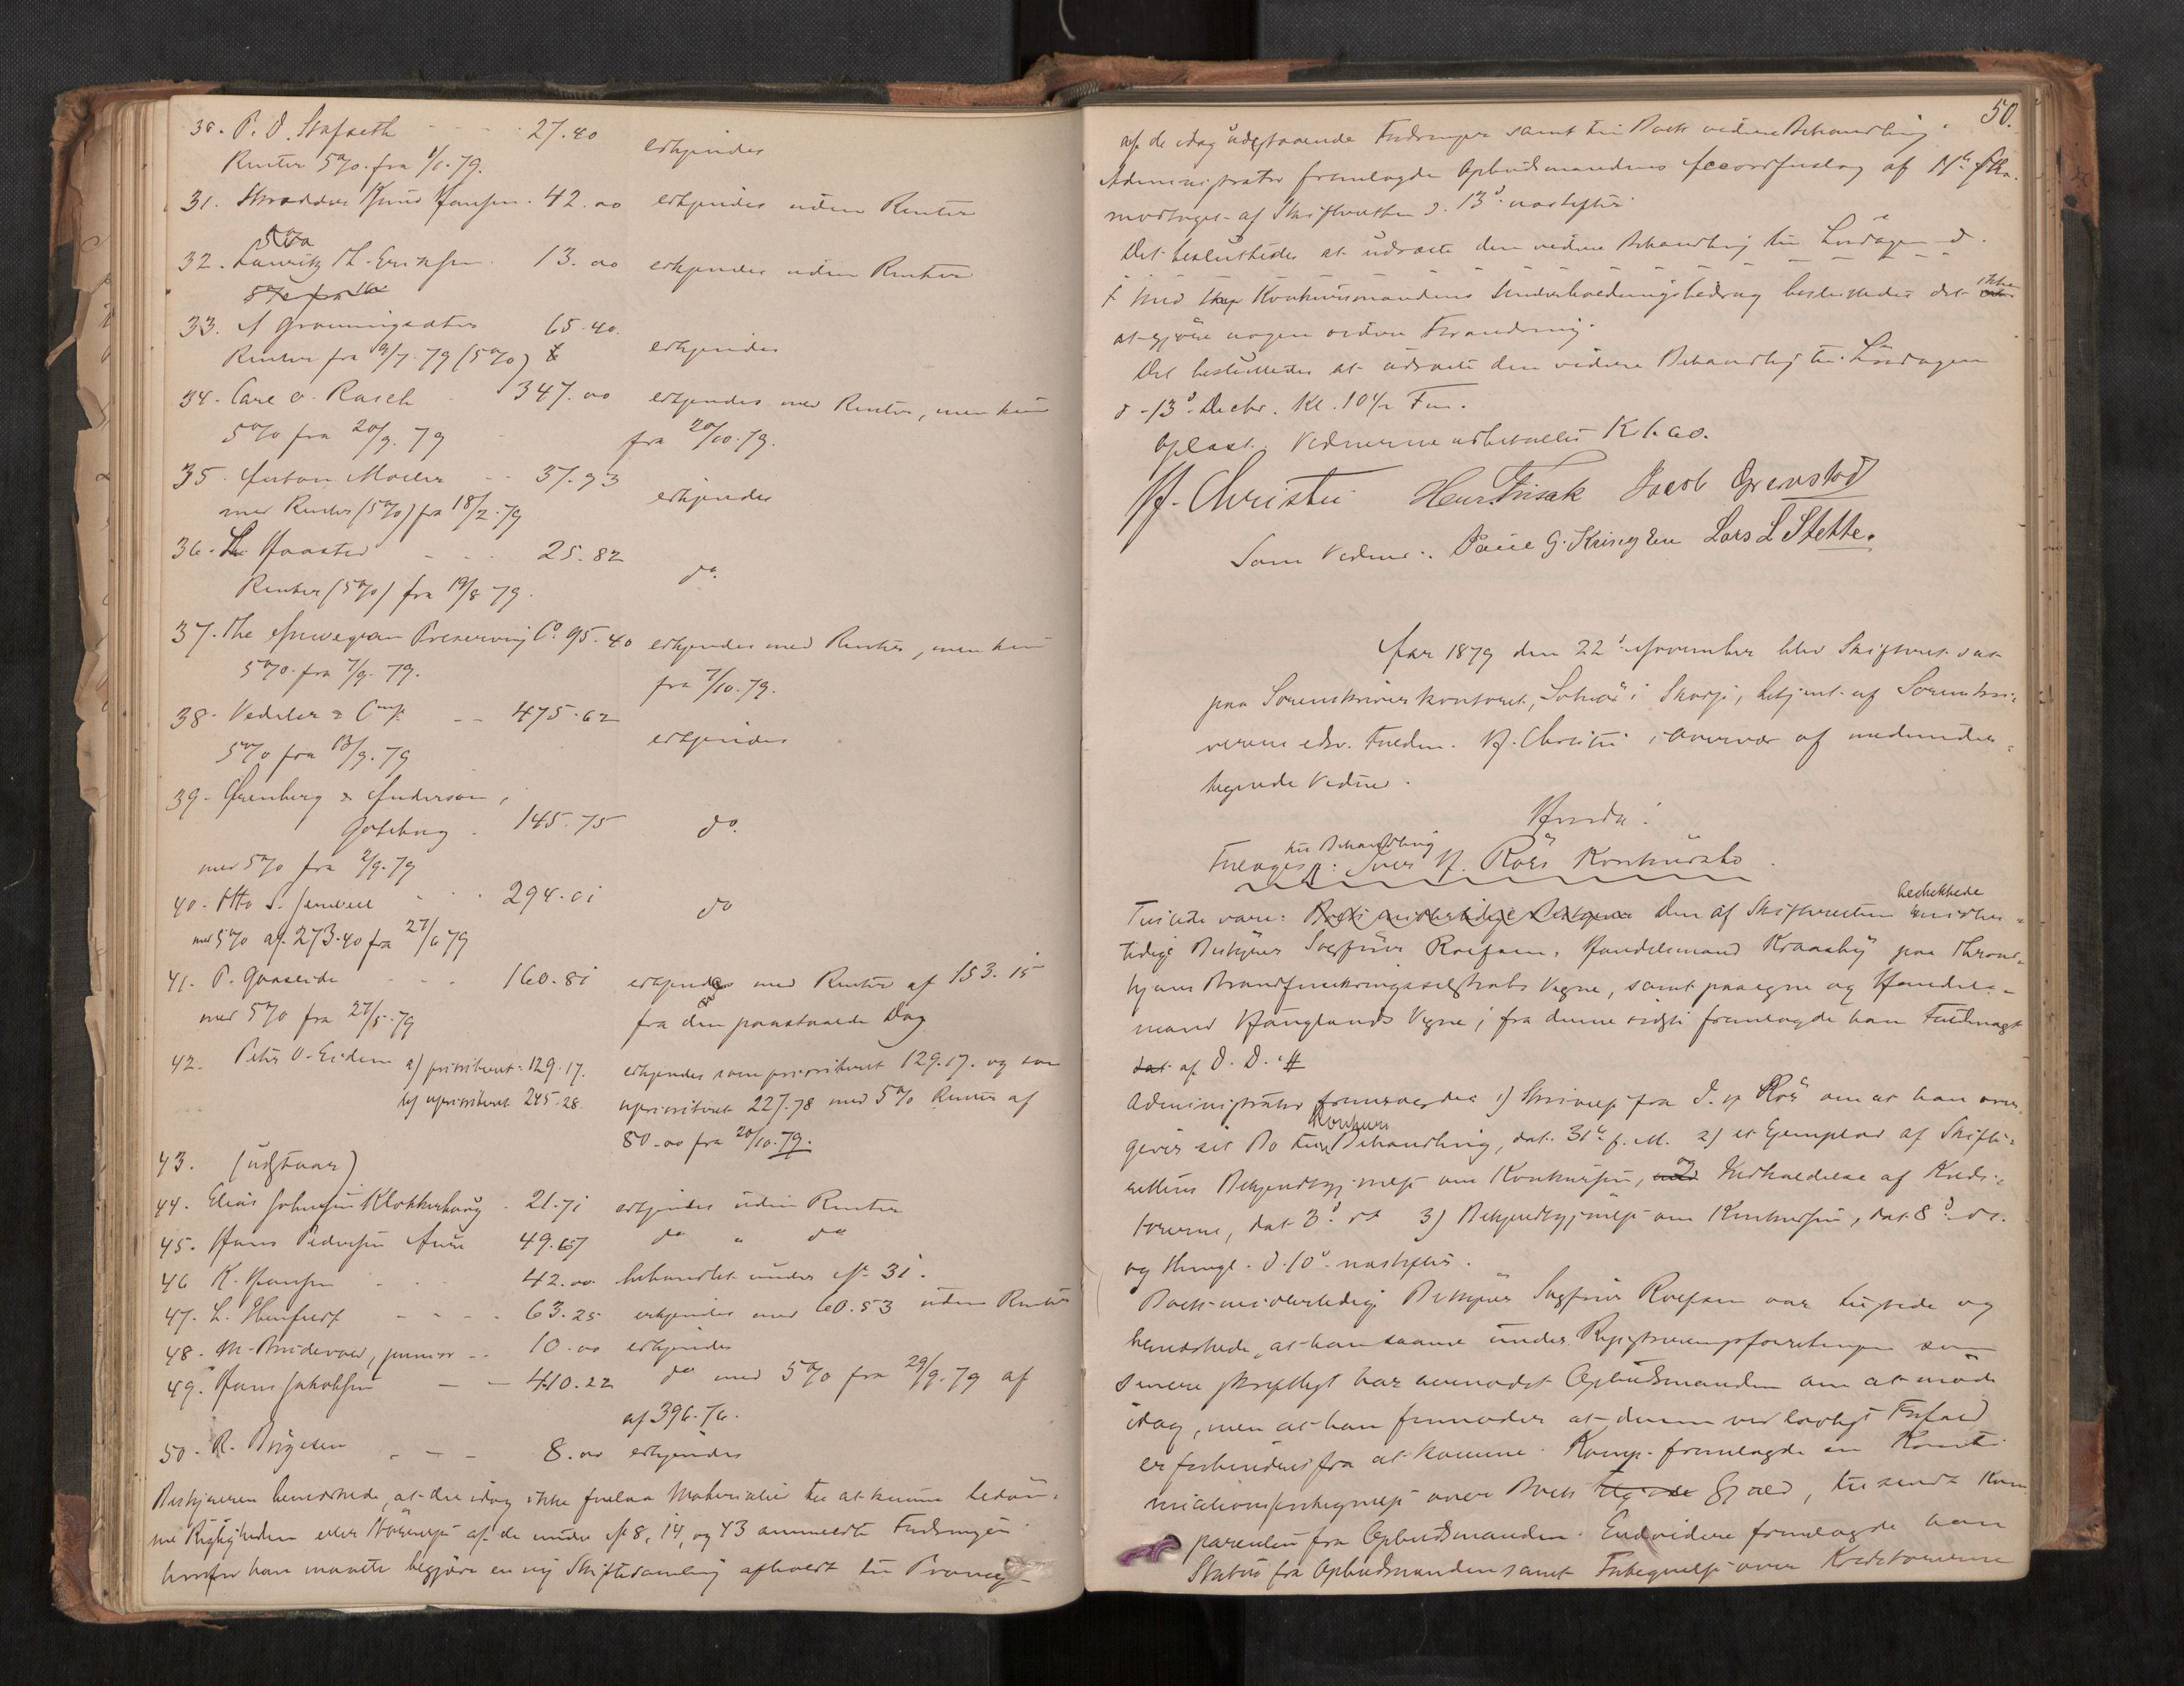 30. P. O. Stafseth - - - 27.40 erkjendes
Renter 5%. fra 1/1.79.
31. Skrædder Knud Hansen. 42.00 erkjendes uden Renter
32. Lauritz Th. Eriksen. 13.00 erkjendes uden Renter
5% fra
33. A Grønningsæter 65.40.
Renter fra 9/7.79 (5%) erkjendes
34. Carl O. Rasch - 347.00 erkjendes med Renter, men kun
5% fra 20/9.79 fra 20/10.79.
35. Anton Møller - - 37.93
med Renter (5%) fra 18/2.79 erkjendes
36. Th. Haasted - - - 25.82
Renter (5%) fra 19/8 79. do.
37. The Norwegian Preserving Co. 95.40 erkjendes med Renter, men kun
5%. fra 7/9.79. fra 7/10.79.
38. Vedeler & Comp. - - 475.62
5% fra 13/9.79 erkjendes
39. Grenberg & Anderson,
Gøteborg. 145.75 do.
med 5% fra 2/9.79
40. Otto S. - - 294.01 do
med 5% af 273.40 fra 27/6 79
41. P. Gaaseide - - - 160.81 erkjendes med Renter af 153.15
med 5% fra 27/5.79 fra den paastaaede Dag
42. Peter O. Eidem a) prioriteret: 129.17. erkjendes som prioriteret 129.17. og som
b) uprioriteret 245.28. uprioriteret 227.78 med 5% Renter af
80.00 fra 20/10.79.
43. (udstaar)
44. Elias Johnsen Klokkerhaug. 21.71 erkjendes uden Renter
45. Hans Pedersen Aure 49.67 do " do
46 K. Hansen - - - 42.00. behandlet under No 31.
47. L. - - - - 63.25 erkjendes med 60.53 uden Renter
48. M. Brudevold, junior - - 10.00 erkjendes
49. Hans Jakobsen - - 410.22 do med 5% fra 29/9.79 af
af 396.76.
50. R. Birgesen - - - 8.00 erkjendes
Bestyreren bemærkede, at der idag ikke forelaa Materialier til at kunne bedøm-
me Rigtigheden eller Størrelsen af de under No 8, 14, og 43 anmeldte Fordringer
hvorfor han maatte begjære en ny Skiftesamling afholdt til Prøvelse
50.
af de idag udestaaende Fordringer samt til Boets videre Behandling.
Administrator fremlagde Opbudsmandens Accordforslag af
modtaget af Skifteretten d. 13de næstefter.
Det besluttedes at udsætte den videre Behandling til Lørdagen d.
† Med Konkursmandens Underholdningsbidrag besluttedes det ikke
at gjøre nogen videre Forandring.
Det besluttedes at udsætte den videre Behandling til Lørdagen
d. 13d. Decbr. Kl. 10½ Fm.
Oplæst. Vidnerne udbetaltes K 1.60.
W. Christie Henr Frisak Jacob Grevstad
Som Vidner: Paul G. Kringsen Lars L Stette.
Aar 1879 den 22d. November blev Skifteret sat
paa Sorenskriverkontoret, Solnør i Skodje, betjent af Sorenskri-
veren edsv. Fuldm. W. Christie i Overvær af medunder-
tegnede Vidner.
Hvorda:
til Behandling
Foretoges: Iver H. Røes Konkursbo.
Tilstede vare: Boets midlertidige Bestyrer den af Skifteretten beskikkede midler-
tidige Bestyrer Sagfører Roefsen, Handelsmand Kraasby paa Thrond-
hjems Brandforsikringsselskabs Vegne, samt paa egne og Handels-
mand Hauglands Vegne; fra denne sidste fremlagde han Fuldmagt
dat. af D. D. #
Administrator fremlagde 1) Skrivelse fra I. H. Røe om at han over-
giver sit Bo til Konkurs Behandling, dat. 31te f. M. 2) et Exemplar af Skifte-
rettens Bekjendtgjørelse om Konkursen, og Indkaldelse af Kredi-
torerne, dat 3d. ds 3) Bekjendtgjørelse om Konkursen, dat 8d. ds.
og thingl. d. 10d. næstefter.
Boets midlertidige Bestyrer Sagfører Roefsen var tilstede og
bemærkede, at han saavel under Registreringsforretningen som
senere skriftligt har anmodet Opbudsmanden om at møde
idag, men at han formoder at denne ved lovligt Forfald
er forhindret fra at komme. Komp. fremlagde en
over Boets Gjæld, tilsendt Kom-
parenten fra Opbudsmanden. Endvidere fremlagde han
Status fra Opbudsmanden samt Fortegnelse over Kreditorerne